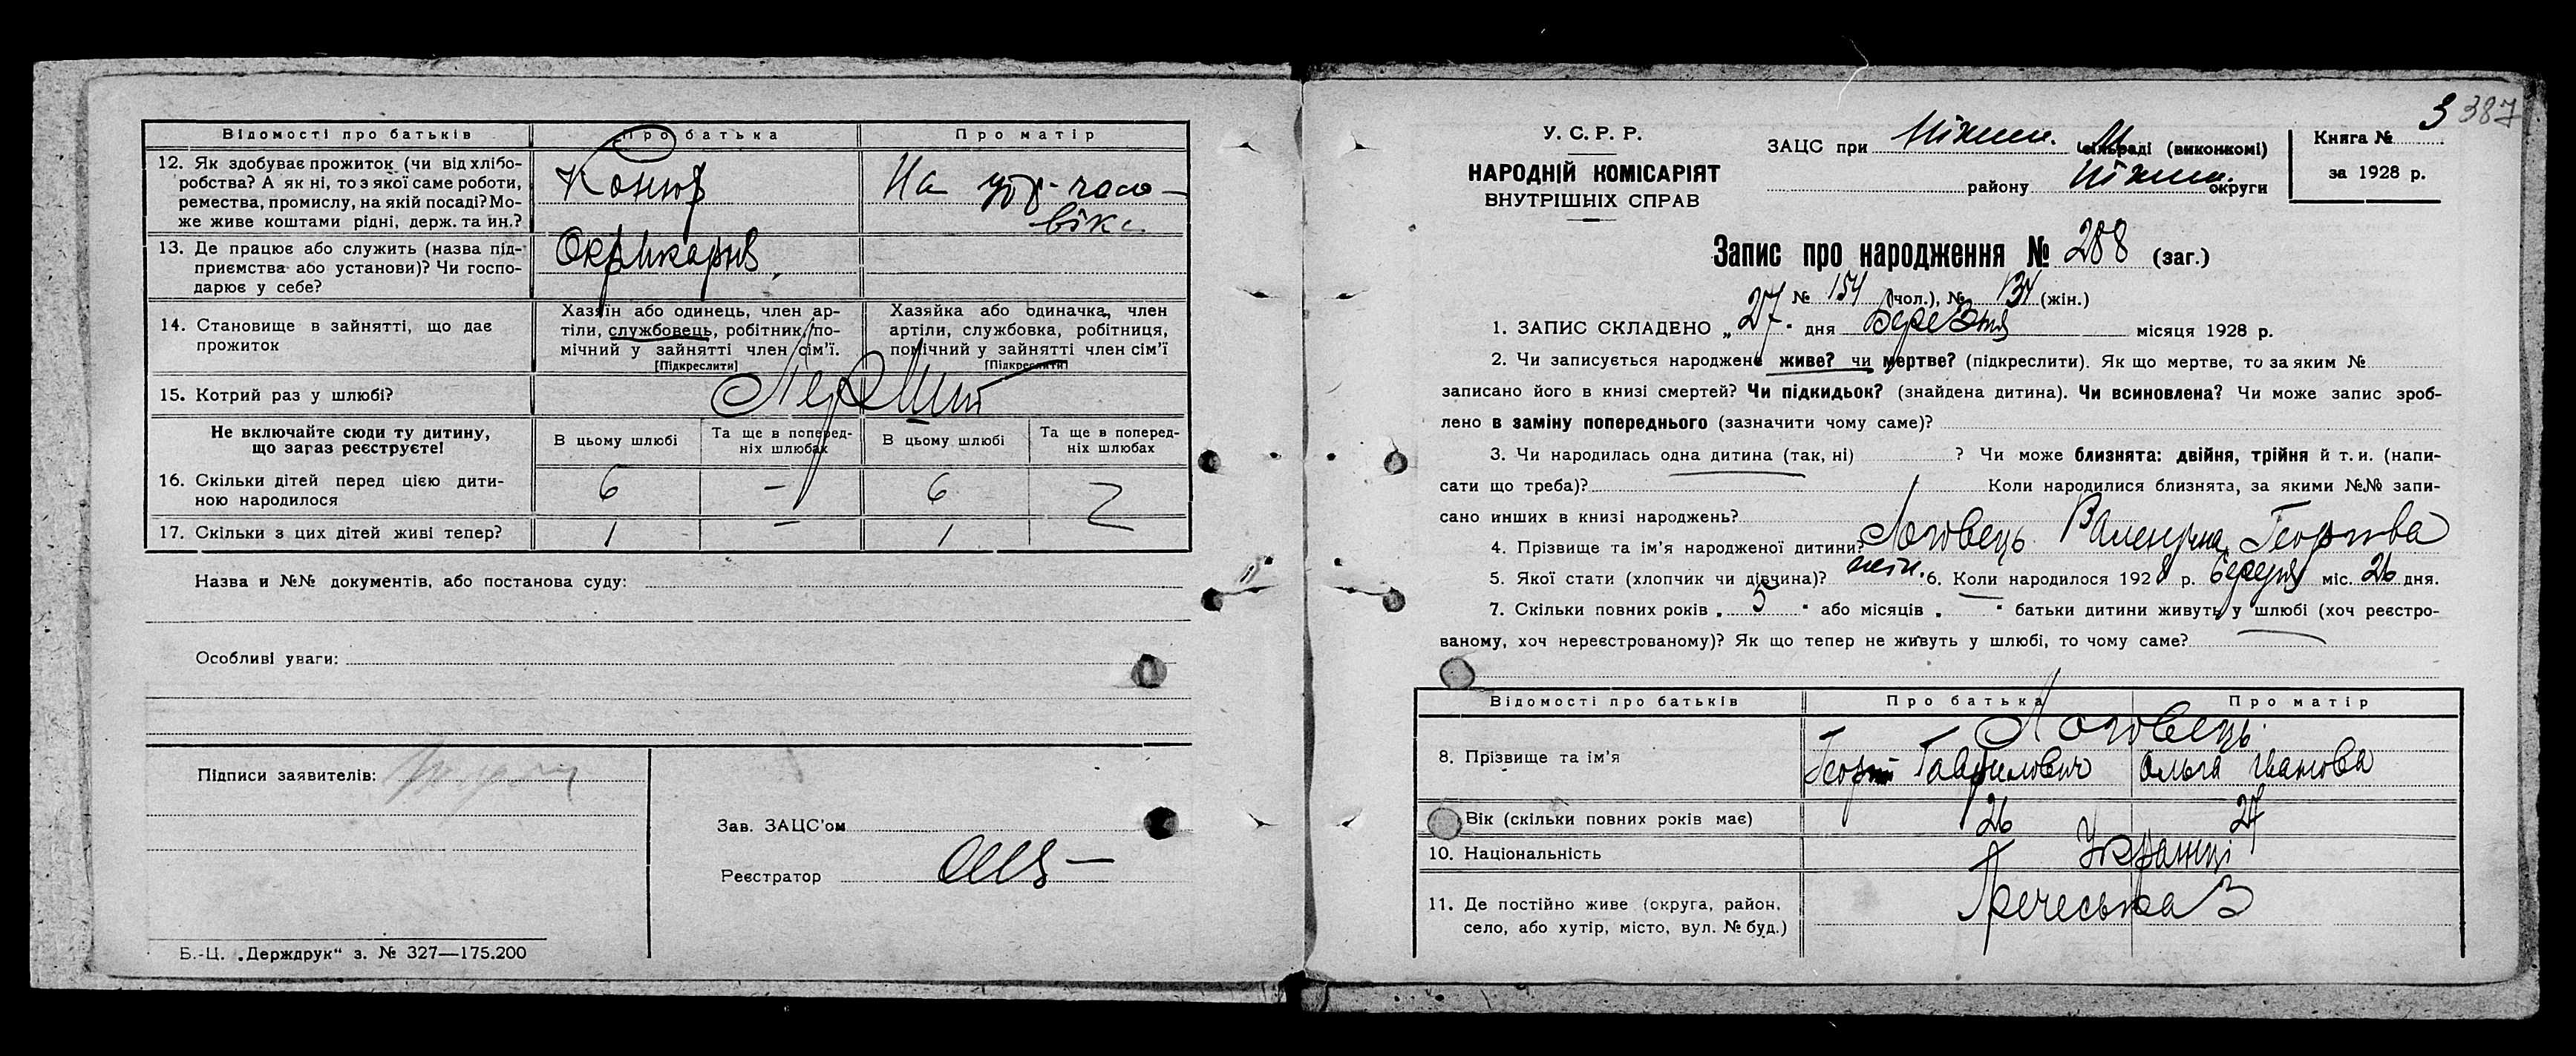 Відомості про батьків Про батька Про матір
12. Як здобуває прожиток (чи від хлібо-
робства? А як ні, то з якої саме роботи,
ремества, промислу, на якій посаді? Мо-
же живе коштами рідні, держ. та ин.?
На
13. Де працює або служить (назва під-
приємства або установи)? Чи госпо-
дарює у себе?
14. Становище в зайнятті, що дає
прожиток
Хазяїн або одинець, член ар-
тіли, службовець, робітник, по-
мічний у зайнятті член сім'ї.
[Підкреслити]
Хазяйка або одиначка, член
артіли, службовка, робітниця,
помічний у зайнятті член сім'ї
[Підкреслити]
15. Котрий раз у шлюбі?
Перший
Не включайте сюди ту дитину,
що зараз реєструєте!
В цьому шлюбі
Та ще в поперед-
ніх шлюбах
В цьому шлюбі
Та ще в поперед-
ніх шлюбах
16. Скільки дітей перед цією дити-
ною народилося
6 — 6
17. Скільки з цих дітей живі тепер?
1 — 1
Назва и №№ документів, або постанова суду:
Особливі уваги:
Підписи заявителів:
Зав. ЗАЦС'ом
Реєстратор
Б.-Ц. „Держдрук“ з. № 327—175.200
3 387
У. С. Р. Р.
НАРОДНІЙ КОМІСАРІЯТ
ВНУТРІШНІХ СПРАВ
ЗАЦС при Ніжин. сільраді (виконкомі)
району Ніжин. округи
Книга №
за 1928 р.
Запис про народження № 288 (заг.)
№ 154 (чол.), № 134 (жін.)
1. ЗАПИС СКЛАДЕНО „27“ дня Березня місяця 1928 р.
2. Чи записується народжене живе? чи мертве? (підкреслити). Як що мертве, то за яким №
записано його в книзі смертей? Чи підкидьок? (знайдена дитина). Чи всиновлена? Чи може запис зроб-
лено в заміну попереднього (зазначити чому саме)?
3. Чи народилась одна дитина (так, ні) ? Чи може близнята: двійня, трійня й т. и. (напи-
сати що треба)? Коли народилися близнята, за якими №№ запи-
сано инших в книзі народжень?
4. Прізвище та ім'я народженої дитини? Логовець Валентина Георгієва
5. Якої стати (хлопчик чи дівчина)? жін. 6. Коли народилося 1928 р. міс. 26 дня.
7. Скільки повних років „5“ або місяців „ “ батьки дитини живуть у шлюбі (хоч реєстро-
ваному, хоч нереєстрованому)? Як що тепер не живуть у шлюбі, то чому саме?
Відомості про батьків Про батька Про матір
Логовець
8. Прізвище та ім'я
Георгій Гаврилович Ольга Іванова
Вік (скільки повних років має) 26 27
10. Національність Українці
11. Де постійно живе (округа, район,
село, або хутір, місто, вул. № буд.)
Гречеська 3